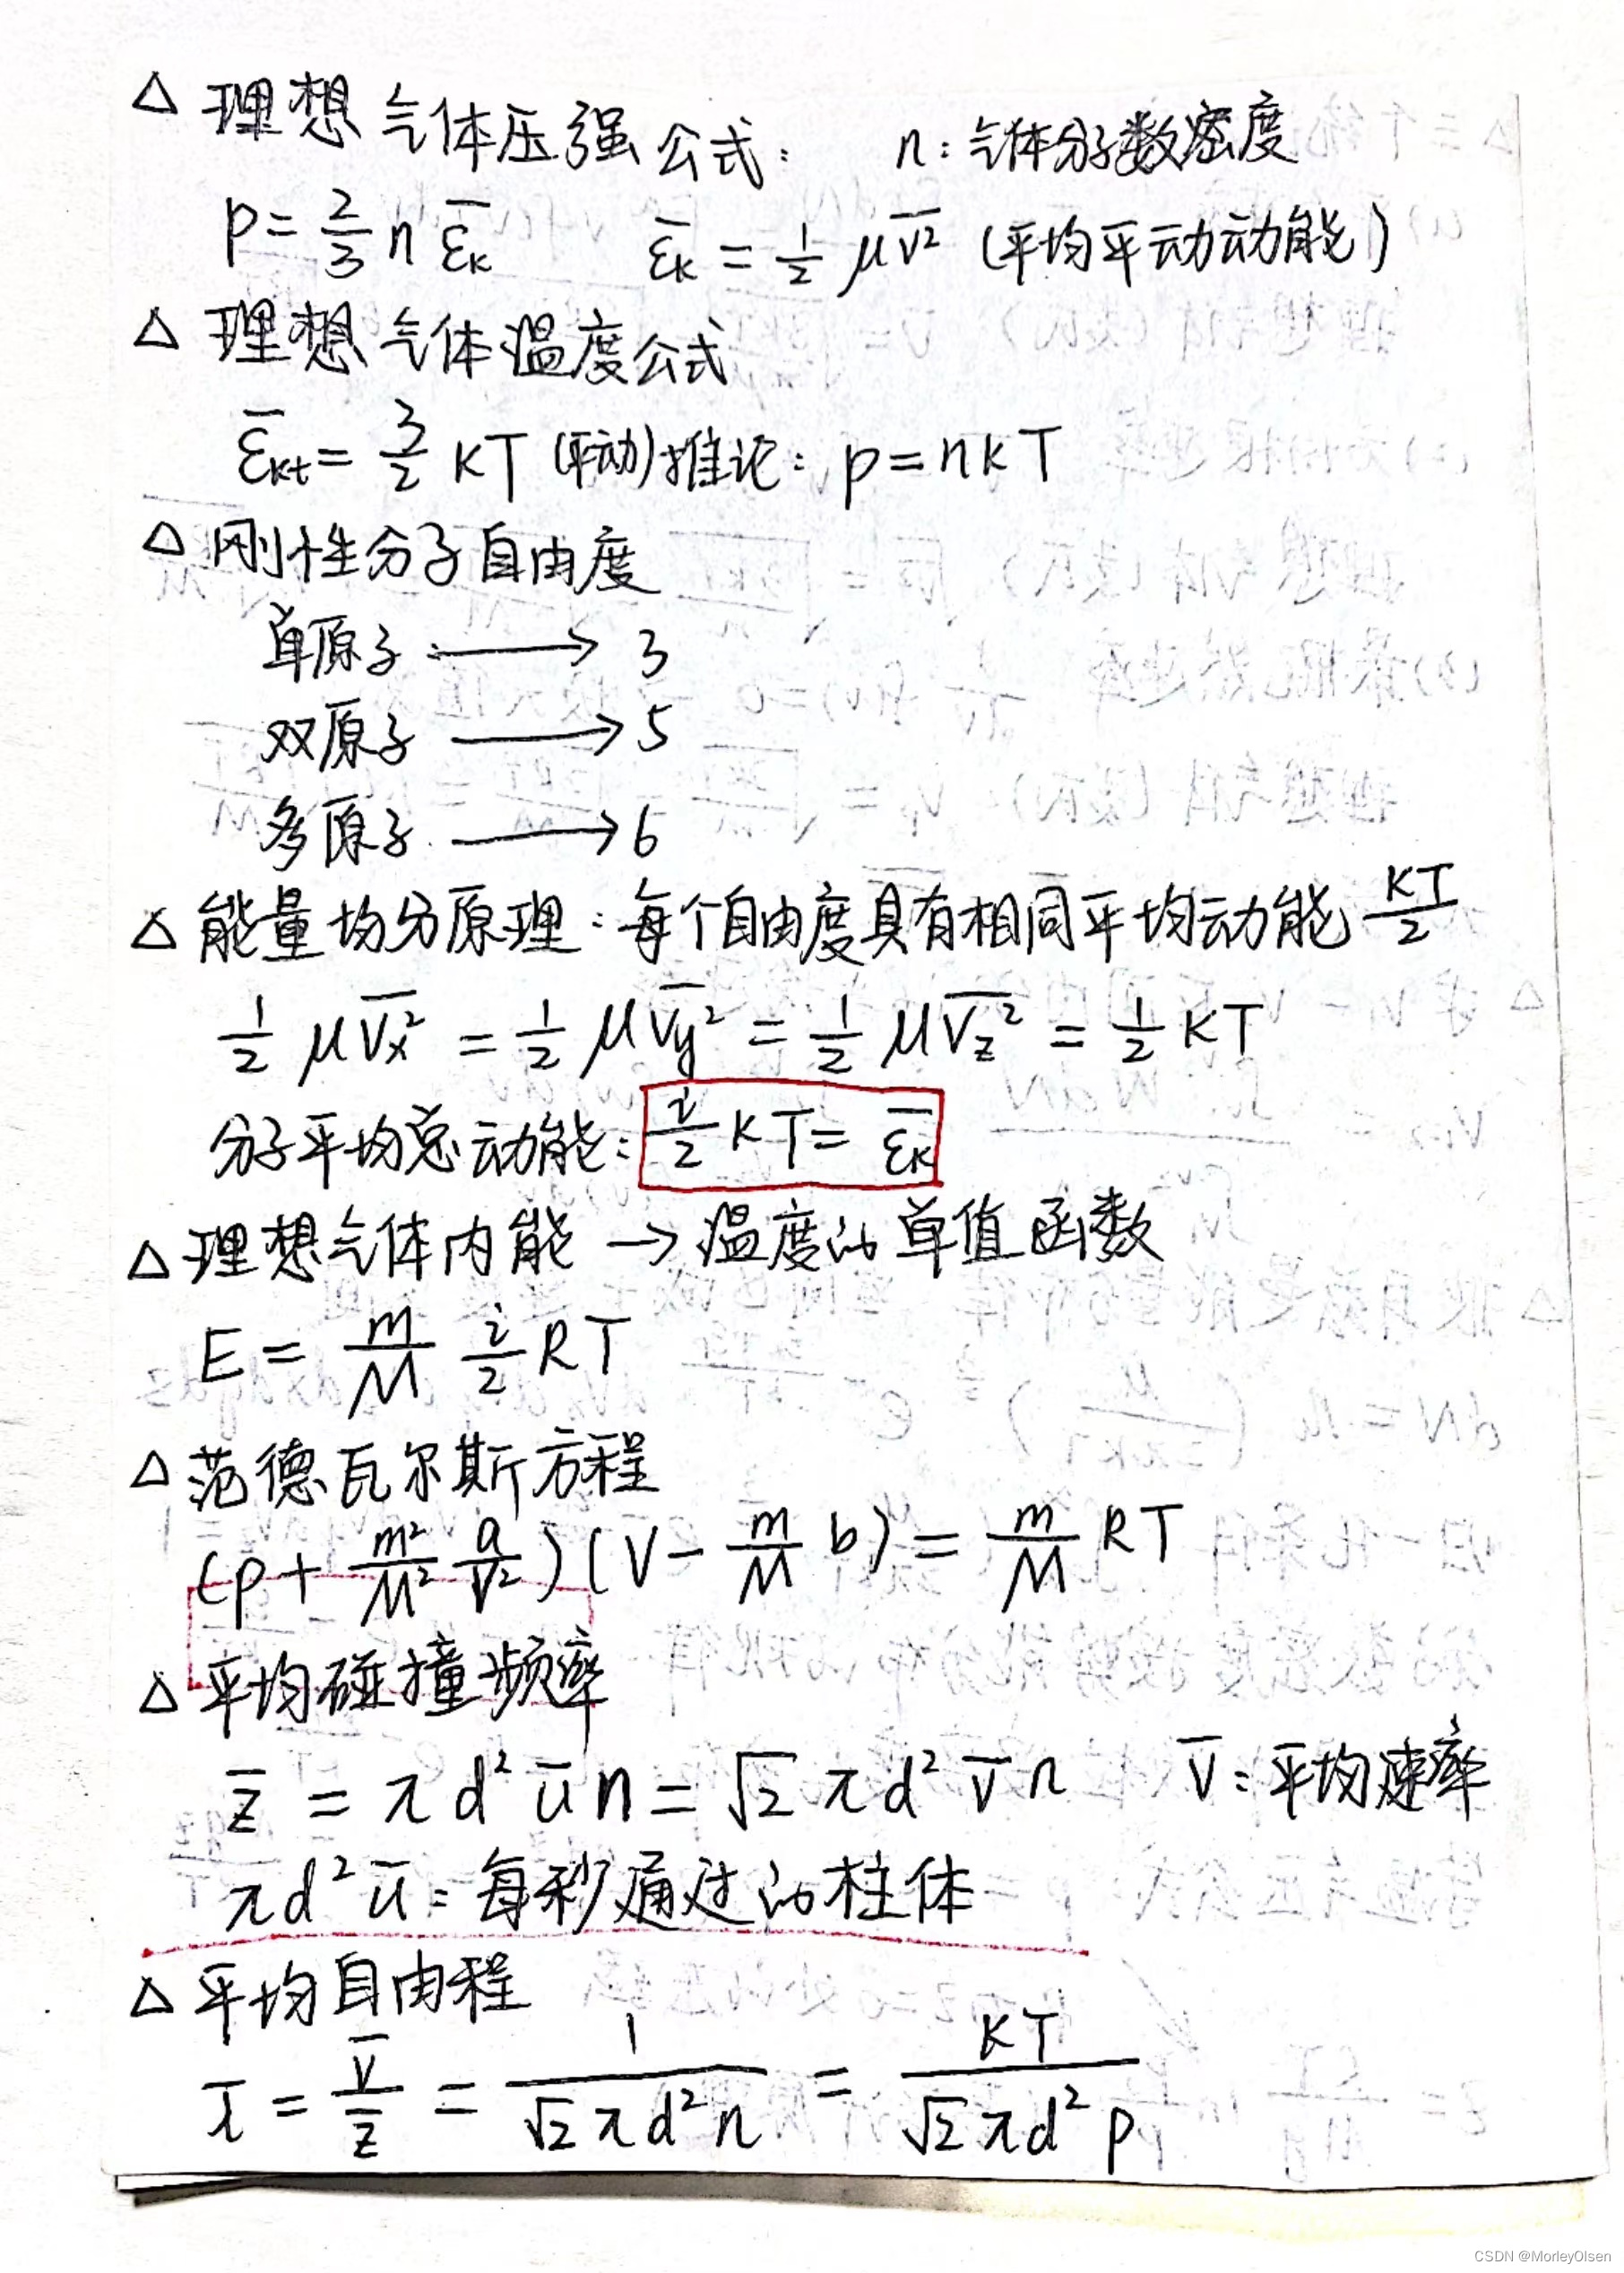 △ 理想气体压强公式： n：气体分子数密度
p = 2/3 n ε̄ₖ ε̄ₖ = 1/2 μ v̄² (平均平动动能)
△ 理想气体温度公式
ε̄ₖₜ = 3/2 KT (平动) 推论：p = nKT
△ 刚性分子自由度
单原子 → 3
双原子 → 5
多原子 → 6
△ 能量均分原理：每个自由度具有相同平均动能 KT/2
1/2 μ v̄ₓ² = 1/2 μ v̄y² = 1/2 μ v̄z² = 1/2 KT
分子平均总动能：i/2 KT = ε̄ₖ
△ 理想气体内能 → 温度的单值函数
E = m/M i/2 RT
△ 范德瓦尔斯方程
(p + m²/M² a/V²)(V - m/M b) = m/M RT
△ 平均碰撞频率
z̄ = πd²ūn = √2 πd²v̄n v̄：平均速率
πd²ū：每秒通过的柱体
△ 平均自由程
λ̄ = v̄/z̄ = 1/(√2 πd²n) = KT/(√2 πd²p)
CSDN @MorleyOlsen